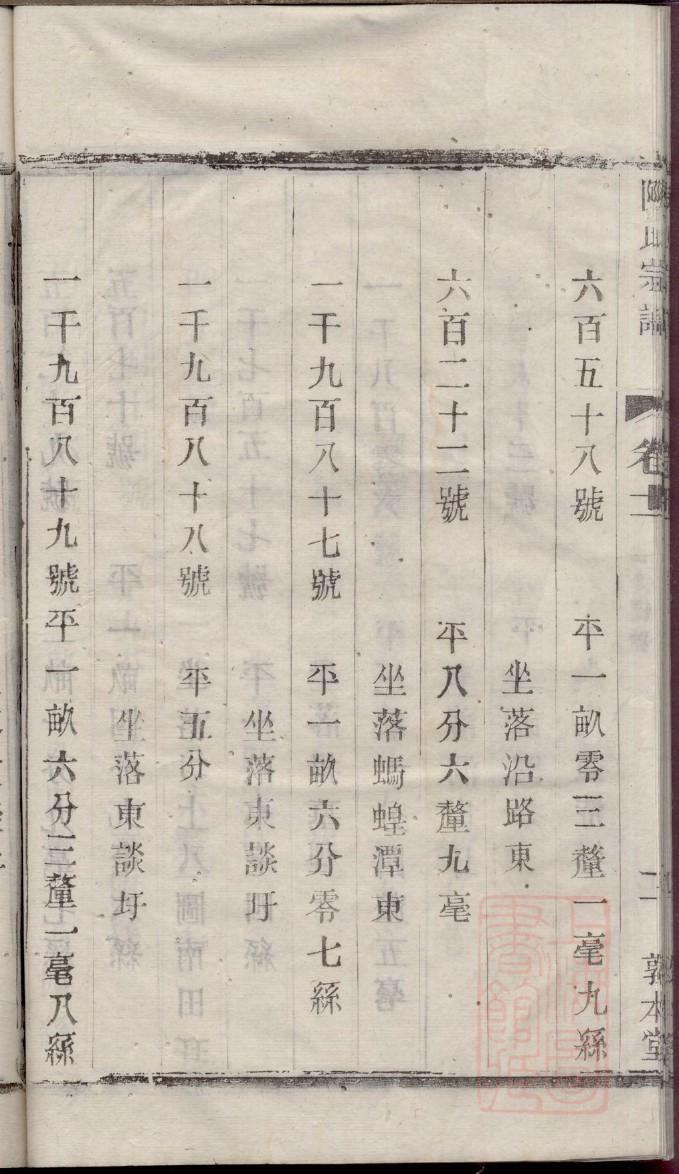 宗譜
卷十
二
敦本堂
六百五十八號　平一畝零三釐一毫九絲
坐落沿路東
六百二十二號　平八分六釐九毫
坐落螞蝗潭東
一千九百八十七號　平一畝六分零七絲
坐落東談圩
一千九百八十八號　平五分
坐落東談圩
一千九百八十九號平一畝六分三釐一毫八絲